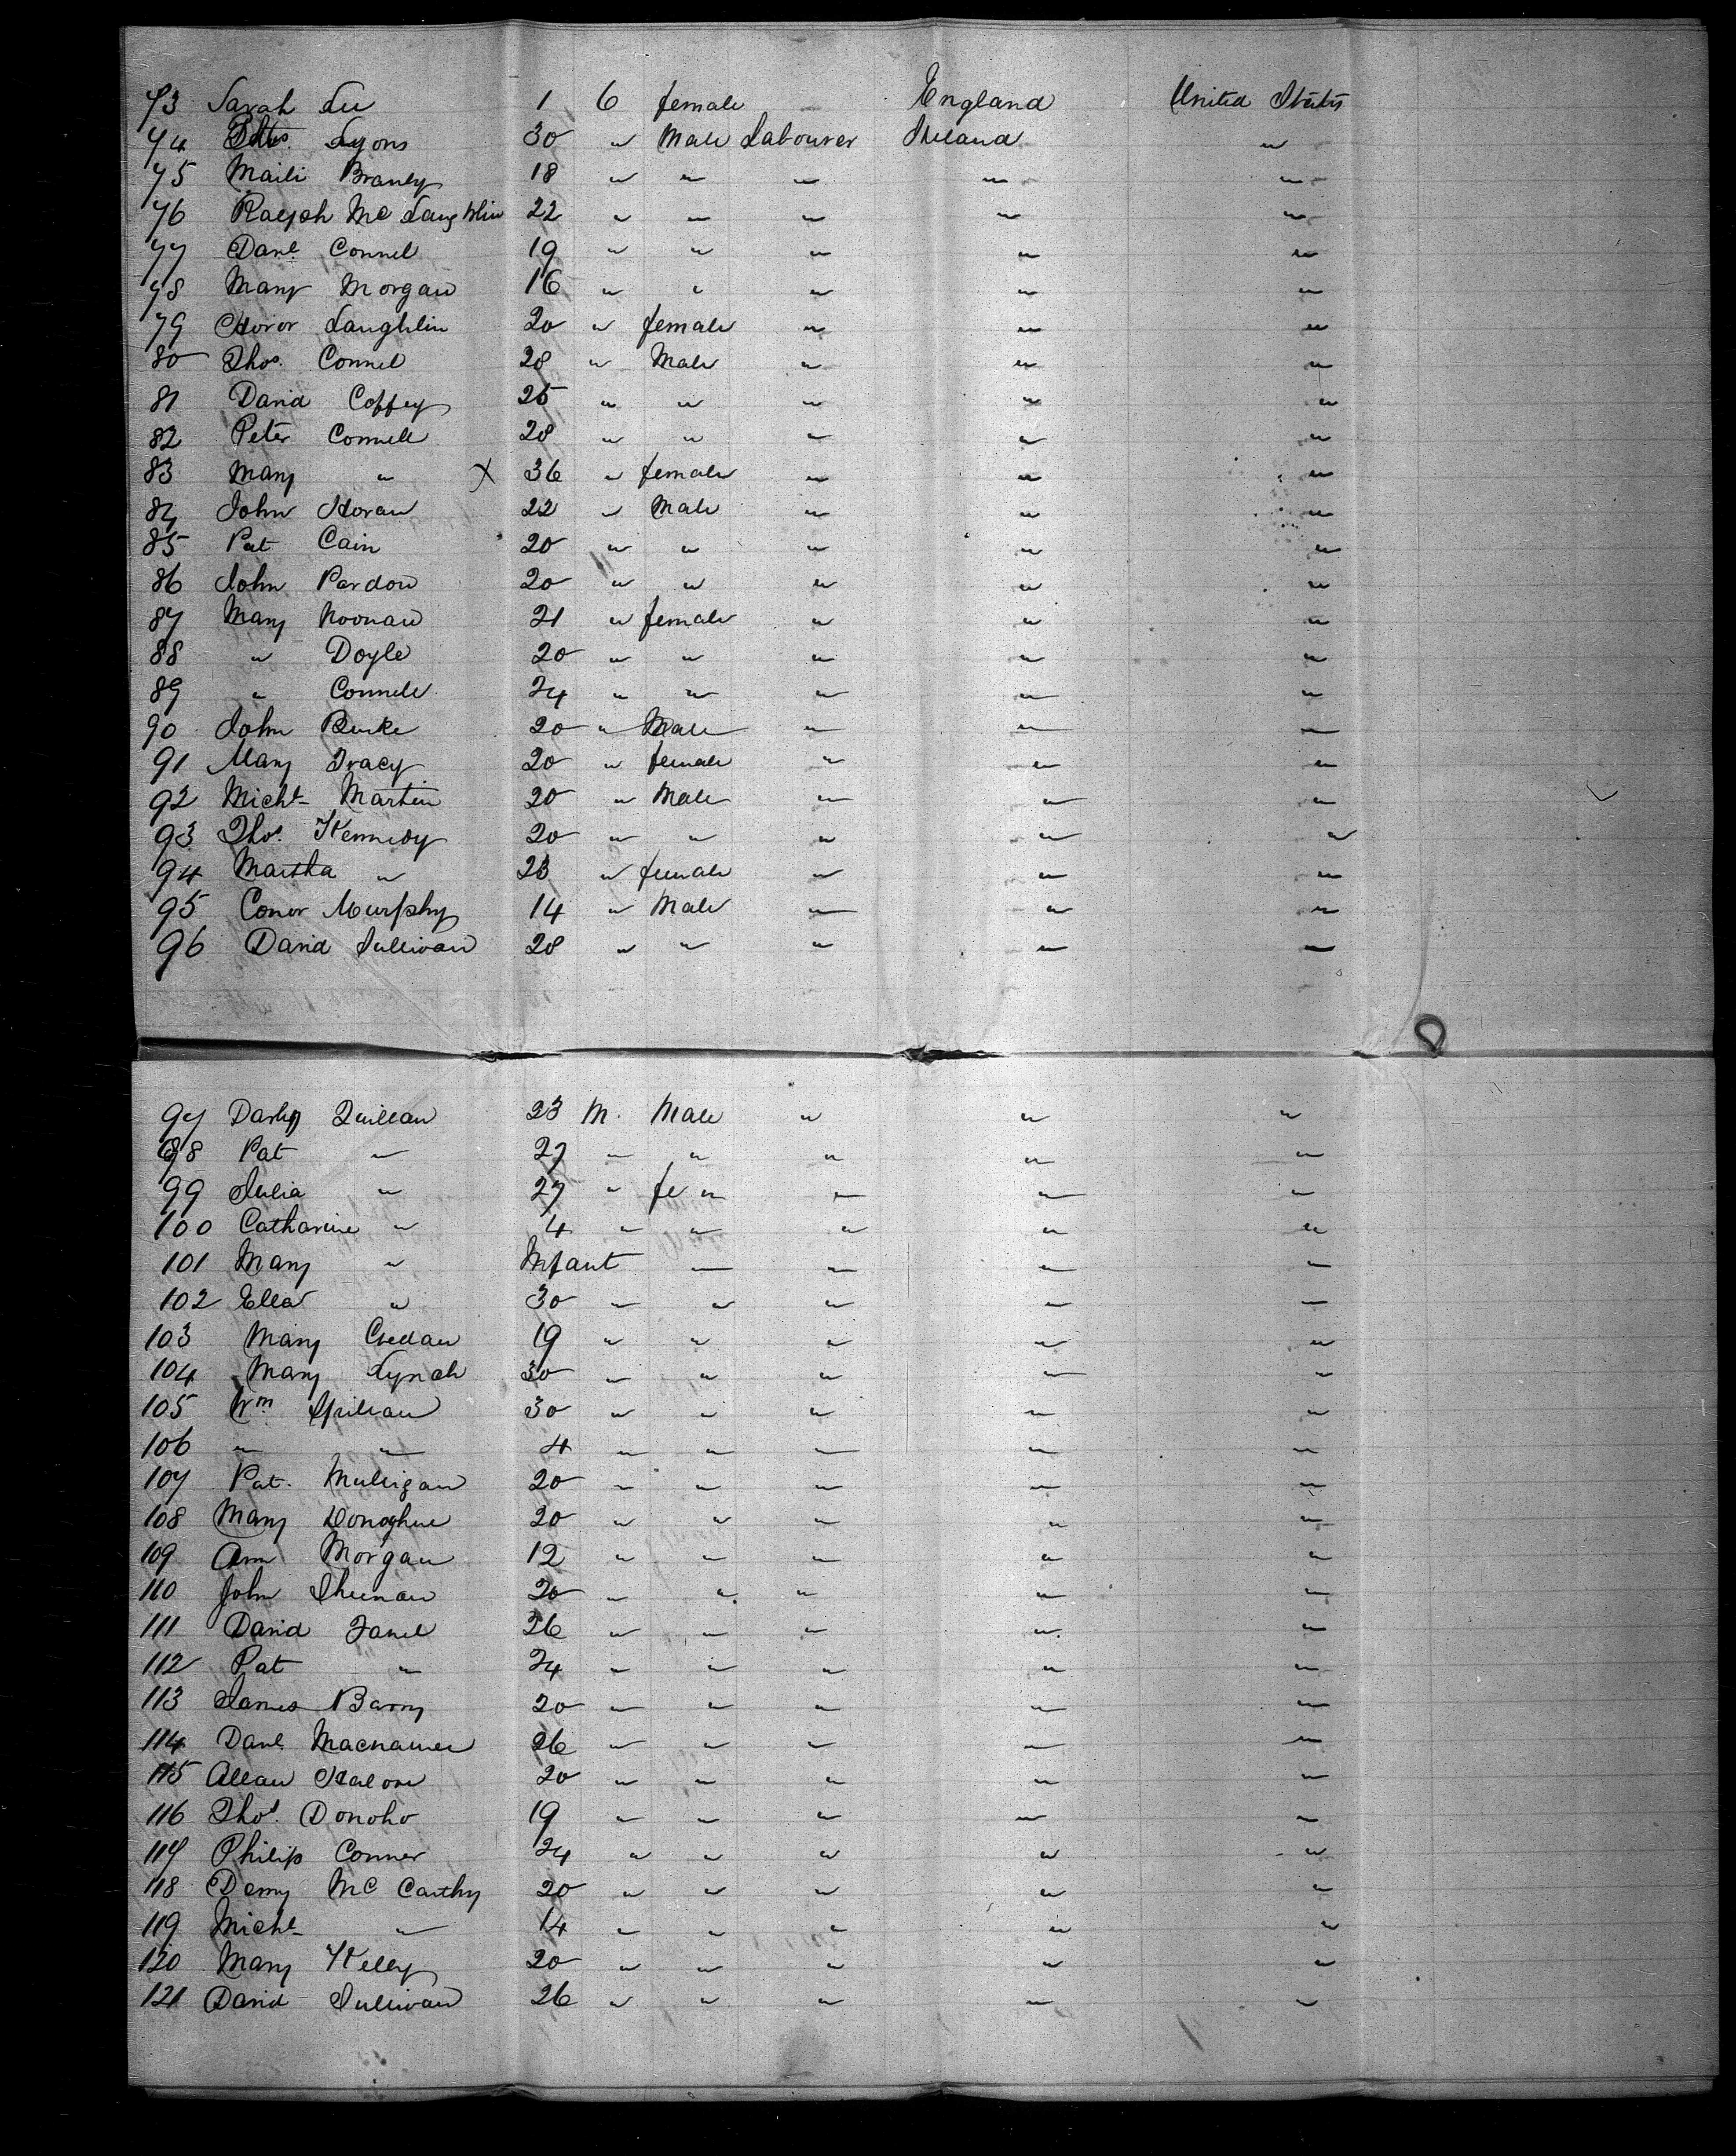 73 Sarah Lee 1 6 female — England United States
74 Thos. Lyons 30 " Male Labourer Ireland "
75 Maili Branly 18 " " " " "
76 Ralph Mc Laughlin 22 " " " " "
77 Danl. Connel 19 " " " " "
78 Mary Morgan 16 " " " " "
79 Honor Laughlin 20 " female " " "
80 Thos. Connel 28 " Male " " "
81 David Coffey 25 " " " " "
82 Peter Connell 28 " " " " "
83 Mary " X 36 " female " " "
84 John Horan 22 " Male " " "
85 Pat Cain 20 " " " " "
86 John Pardow 20 " " " " "
87 Mary Noonan 21 " female " " "
88 " Doyle 20 " " " " "
89 " Connell 24 " " " " "
90 John Burke 20 " Male " " "
91 Mary Tracy 20 " female " " "
92 Michl Martin 20 " Male " " "
93 Thos. Kennedy 20 " " " " "
94 Martha " 23 " female " " "
95 Conor Murphy 14 " Male " " "
96 David Sullivan 28 " " " " "
97 Darby Quillan 23 M. Male " " "
98 Pat " 27 " " " " "
99 Julia " 27 " fe " " " "
100 Catharine " 4 " " " " "
101 Mary " Infant " " " "
102 Ellen " 30 " " " " "
103 Mary Credan 19 " " " " "
104 Mary Lynch 30 " " " " "
105 Wm Spillan 30 " " " " "
106 " " 4 " " " " "
107 Pat. Mulligan 20 " " " " "
108 Mary Donoghue 20 " " " " "
109 Ann Morgan 12 " " " " "
110 John Sheenan 20 " " " " "
111 David 26 " " " " "
112 Pat " 24 " " " " "
113 James Barry 20 " " " " "
114 Danl. Macnamer 26 " " " " "
115 Allan 20 " " " " "
116 Thos. Donoho 19 " " " " "
117 Philip Conner 24 " " " " "
118 Demy Mc Carthy 20 " " " " "
119 Michl " 14 " " " " "
120 Mary Kelly 20 " " " " "
121 David Sullivan 26 " " " " "